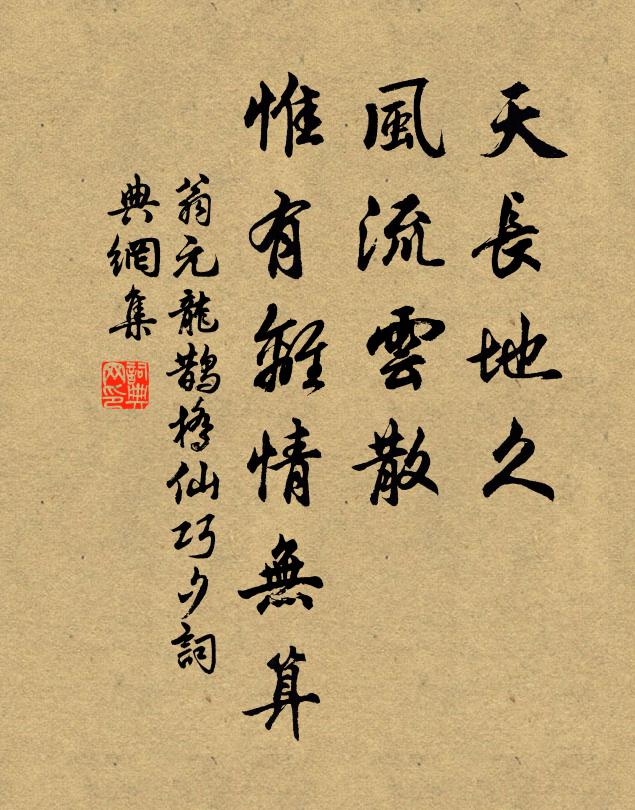 天長地久
風流雲散
惟有離情無算
翁元龍鵲橋仙巧夕詞
典網集
詞典
网印